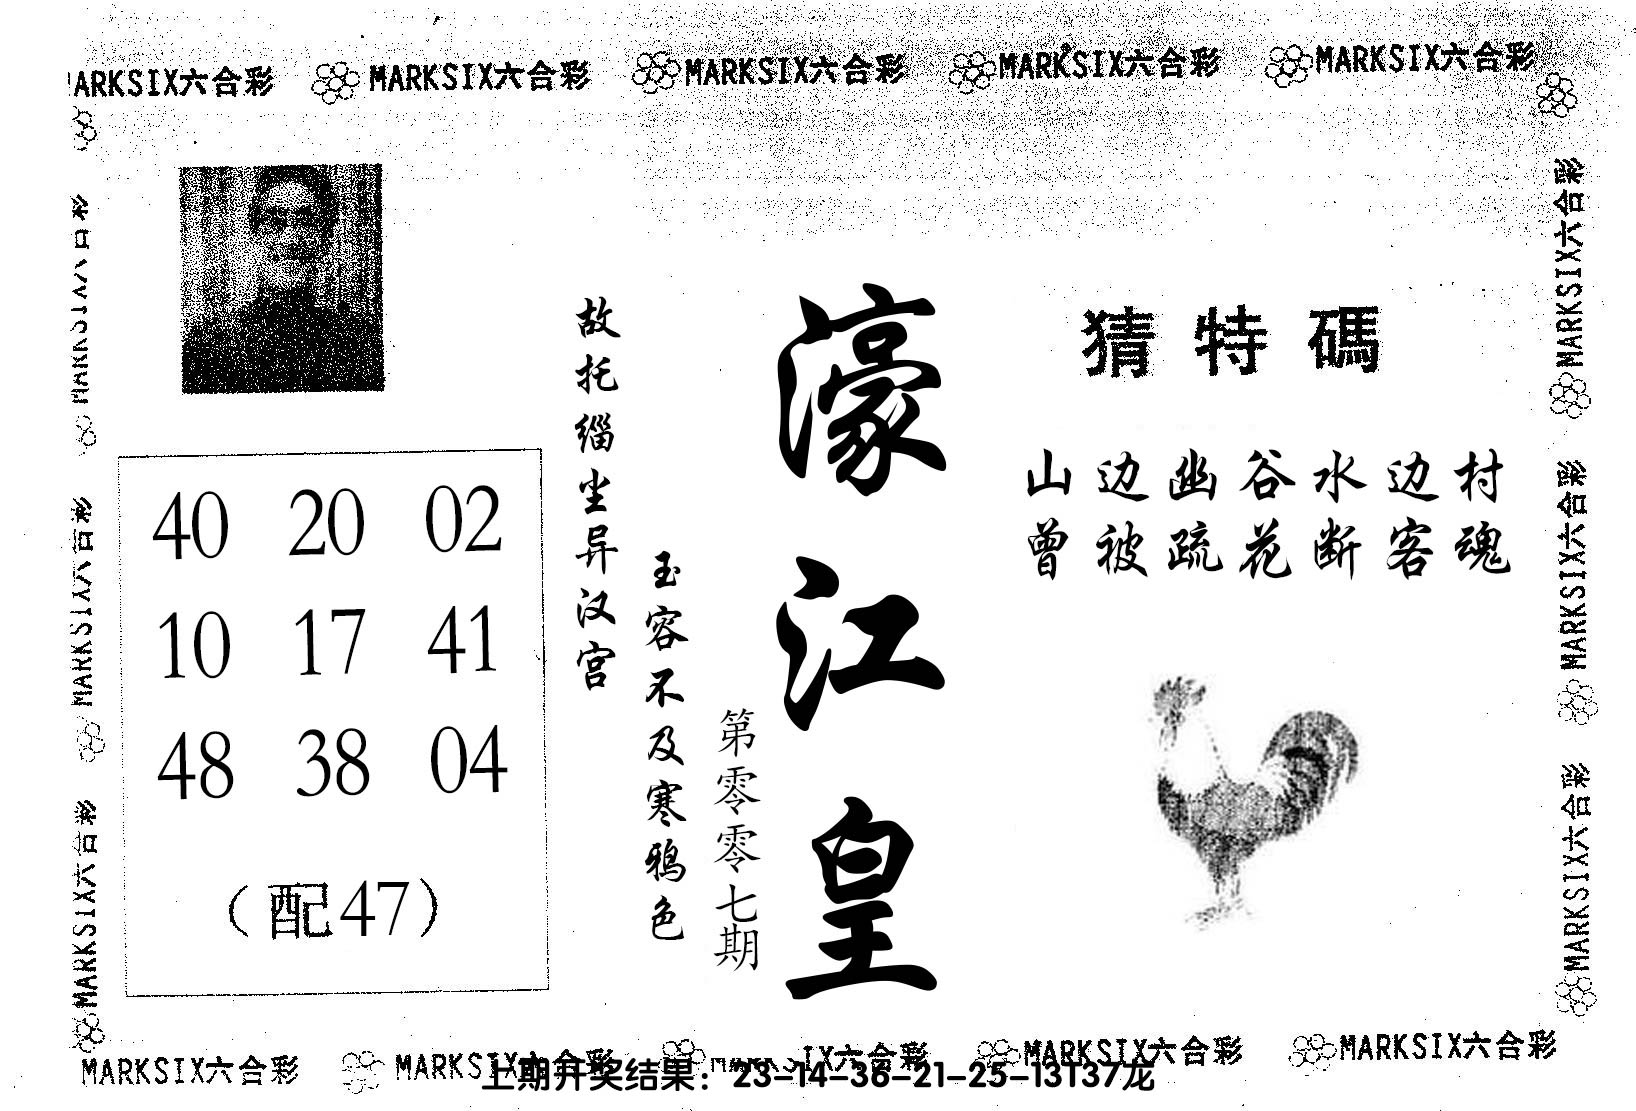 MARKSIX六合彩 MARKSIX六合彩 MARKSIX六合彩 MARKSIX六合彩 MARKSIX六合彩
猜特碼
山边幽谷水边村
曾被疏花断客魂
濠江皇
第零零七期
玉容不及寒鸦色
故托缁尘异汉宫
40 20 02
10 17 41
48 38 04
（配47）
MARKSIX六合彩
MARKSIX六合彩
MARKSIX六合彩
MARKSIX六合彩
MARKSIX六合彩
MARKSIX六合彩
MARKSIX六合彩 MARKSIX六合彩 MARKSIX六合彩 MARKSIX六合彩
上期开奖结果：23-14-36-21-25-13137龙